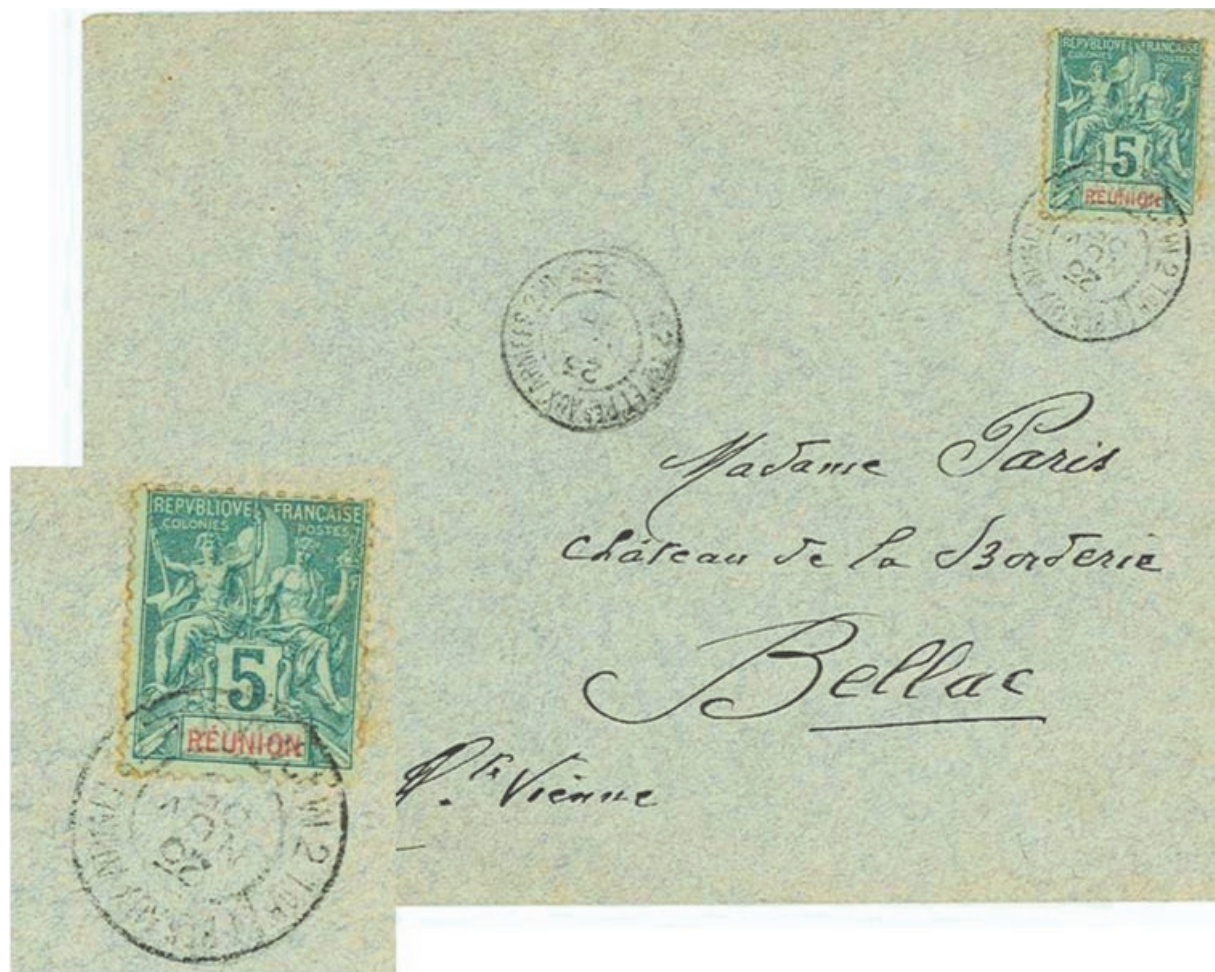 REPVBLIQVE FRANÇAISE
COLONIES POSTES
5
RÉUNION
Madame Paris
Château de la Borderie
Bellac
Hte Vienne
REPVBLIQVE FRANÇAISE
COLONIES POSTES
5
RÉUNION